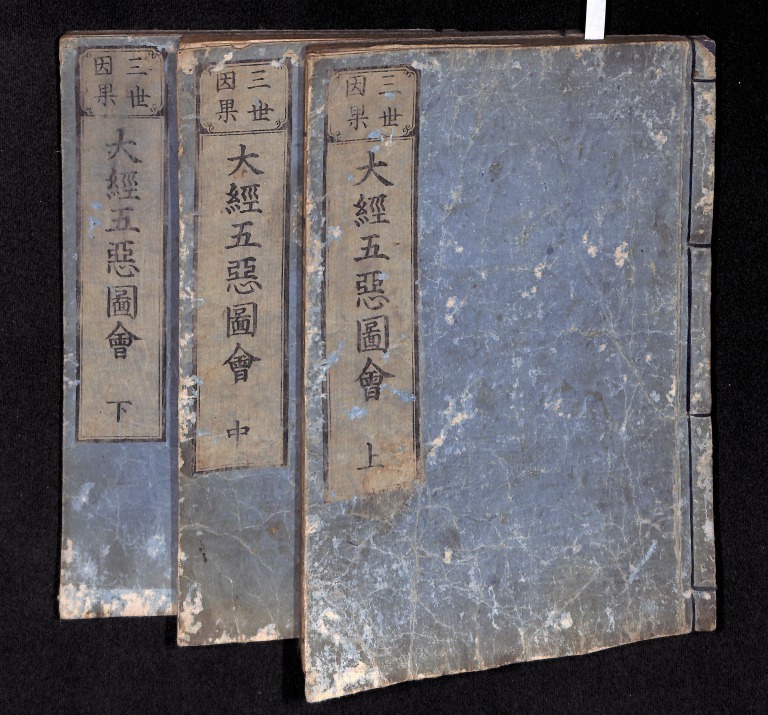 三世
因果
大經五惡圖會
上
三世
因果
大經五惡圖會
中
三世
因果
大經五惡圖會
下